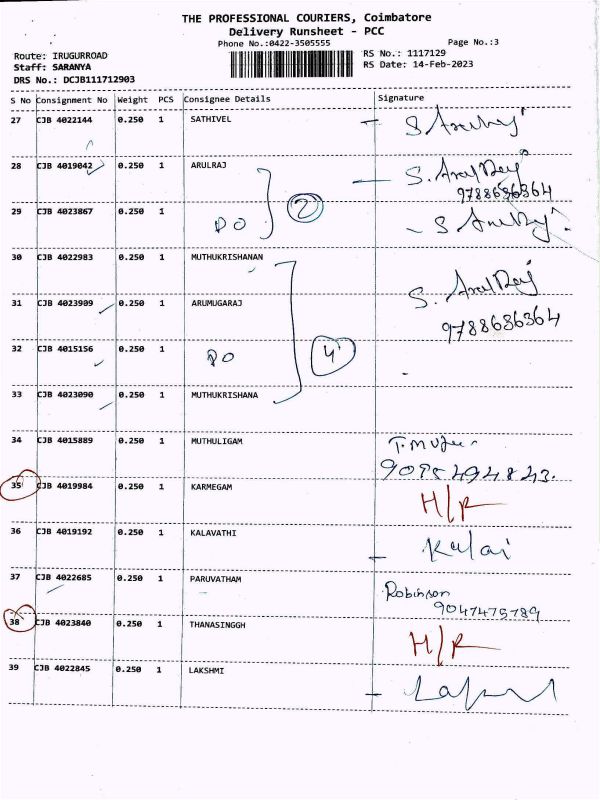 THE PROFESSIONAL COURIERS, Coimbatore
Delivery Runsheet - PCC
Phone No.:0422-3505555
Page No.:3
Route: IRUGURROAD
RS No.: 1117129
Staff: SARANYA
RS Date: 14-Feb-2023
DRS No.: DCJB111712903
S No Consignment No Weight PCS Consignee Details Signature
27 CJB 4022144 0.250 1 SATHIVEL
28 CJB 4019042 0.250 1 ARULRAJ S. Arul Raj
9788686364
2
29 CJB 4023867 0.250 1
DO
30 CJB 4022983 0.250 1 MUTHUKRISHANAN
S. Arul Raj
31 CJB 4023909 0.250 1 ARUMUGARAJ 9788686364
32 CJB 4015156 0.250 1
DO 4
33 CJB 4023090 0.250 1 MUTHUKRISHANA
34 CJB 4015889 0.250 1 MUTHULIGAM
35 CJB 4019984 0.250 1 KARMEGAM H/R
36 CJB 4019192 0.250 1 KALAVATHI Kalai
37 CJB 4022685 0.250 1 PARUVATHAM Robinson
9047475789
38 CJB 4023840 0.250 1 THANASINGGH H/R
39 CJB 4022845 0.250 1 LAKSHMI